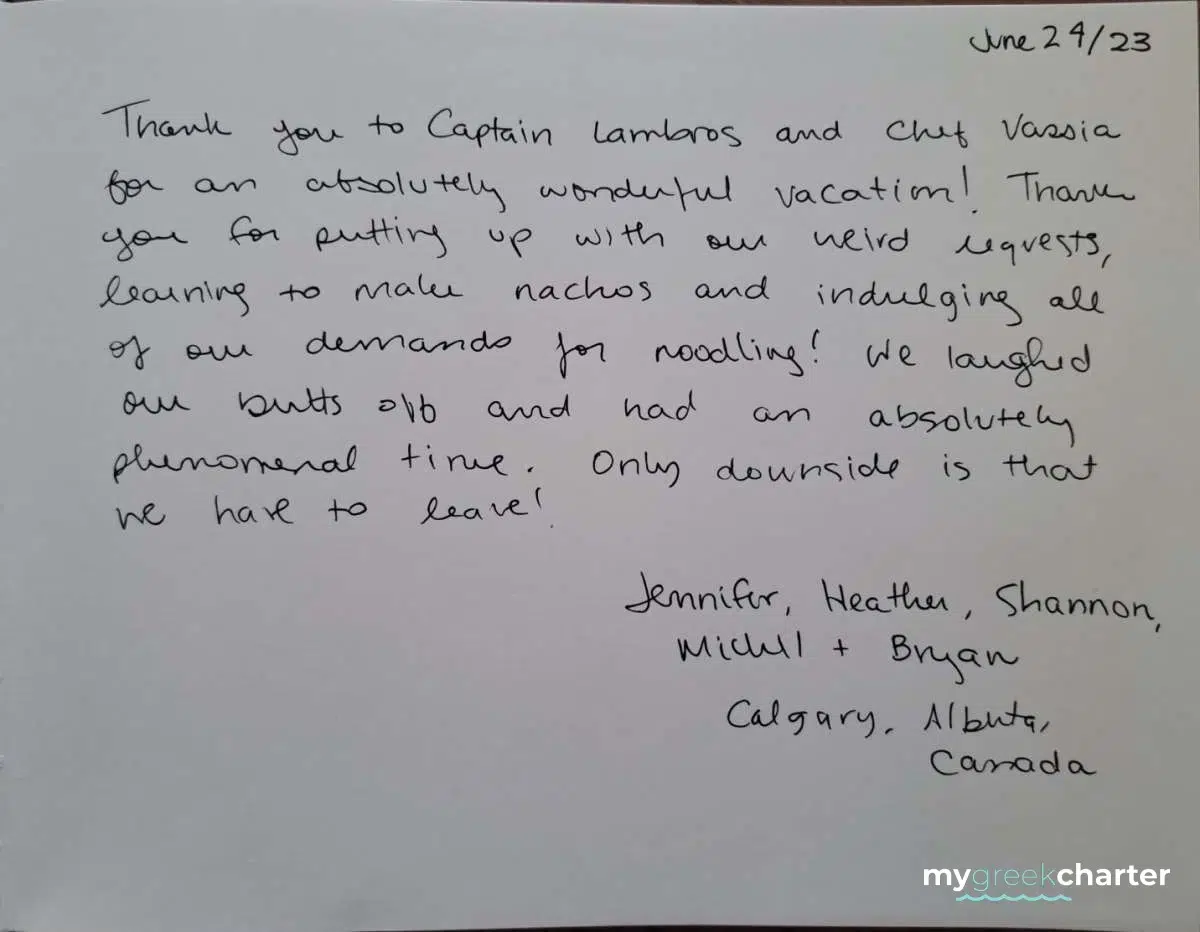 June 24/23
Thank you to Captain Lambros and Chef Vassia
for an absolutely wonderful vacation! Thank
you for putting up with our weird requests,
learning to make nachos and indulging all
of our demands for noodling! We laughed
our butts off and had an absolutely
phenomenal time. Only downside is that
we have to leave!
Jennifer, Heather, Shannon,
+ Bryan
Calgary, Alberta,
Canada
mygreekcharter